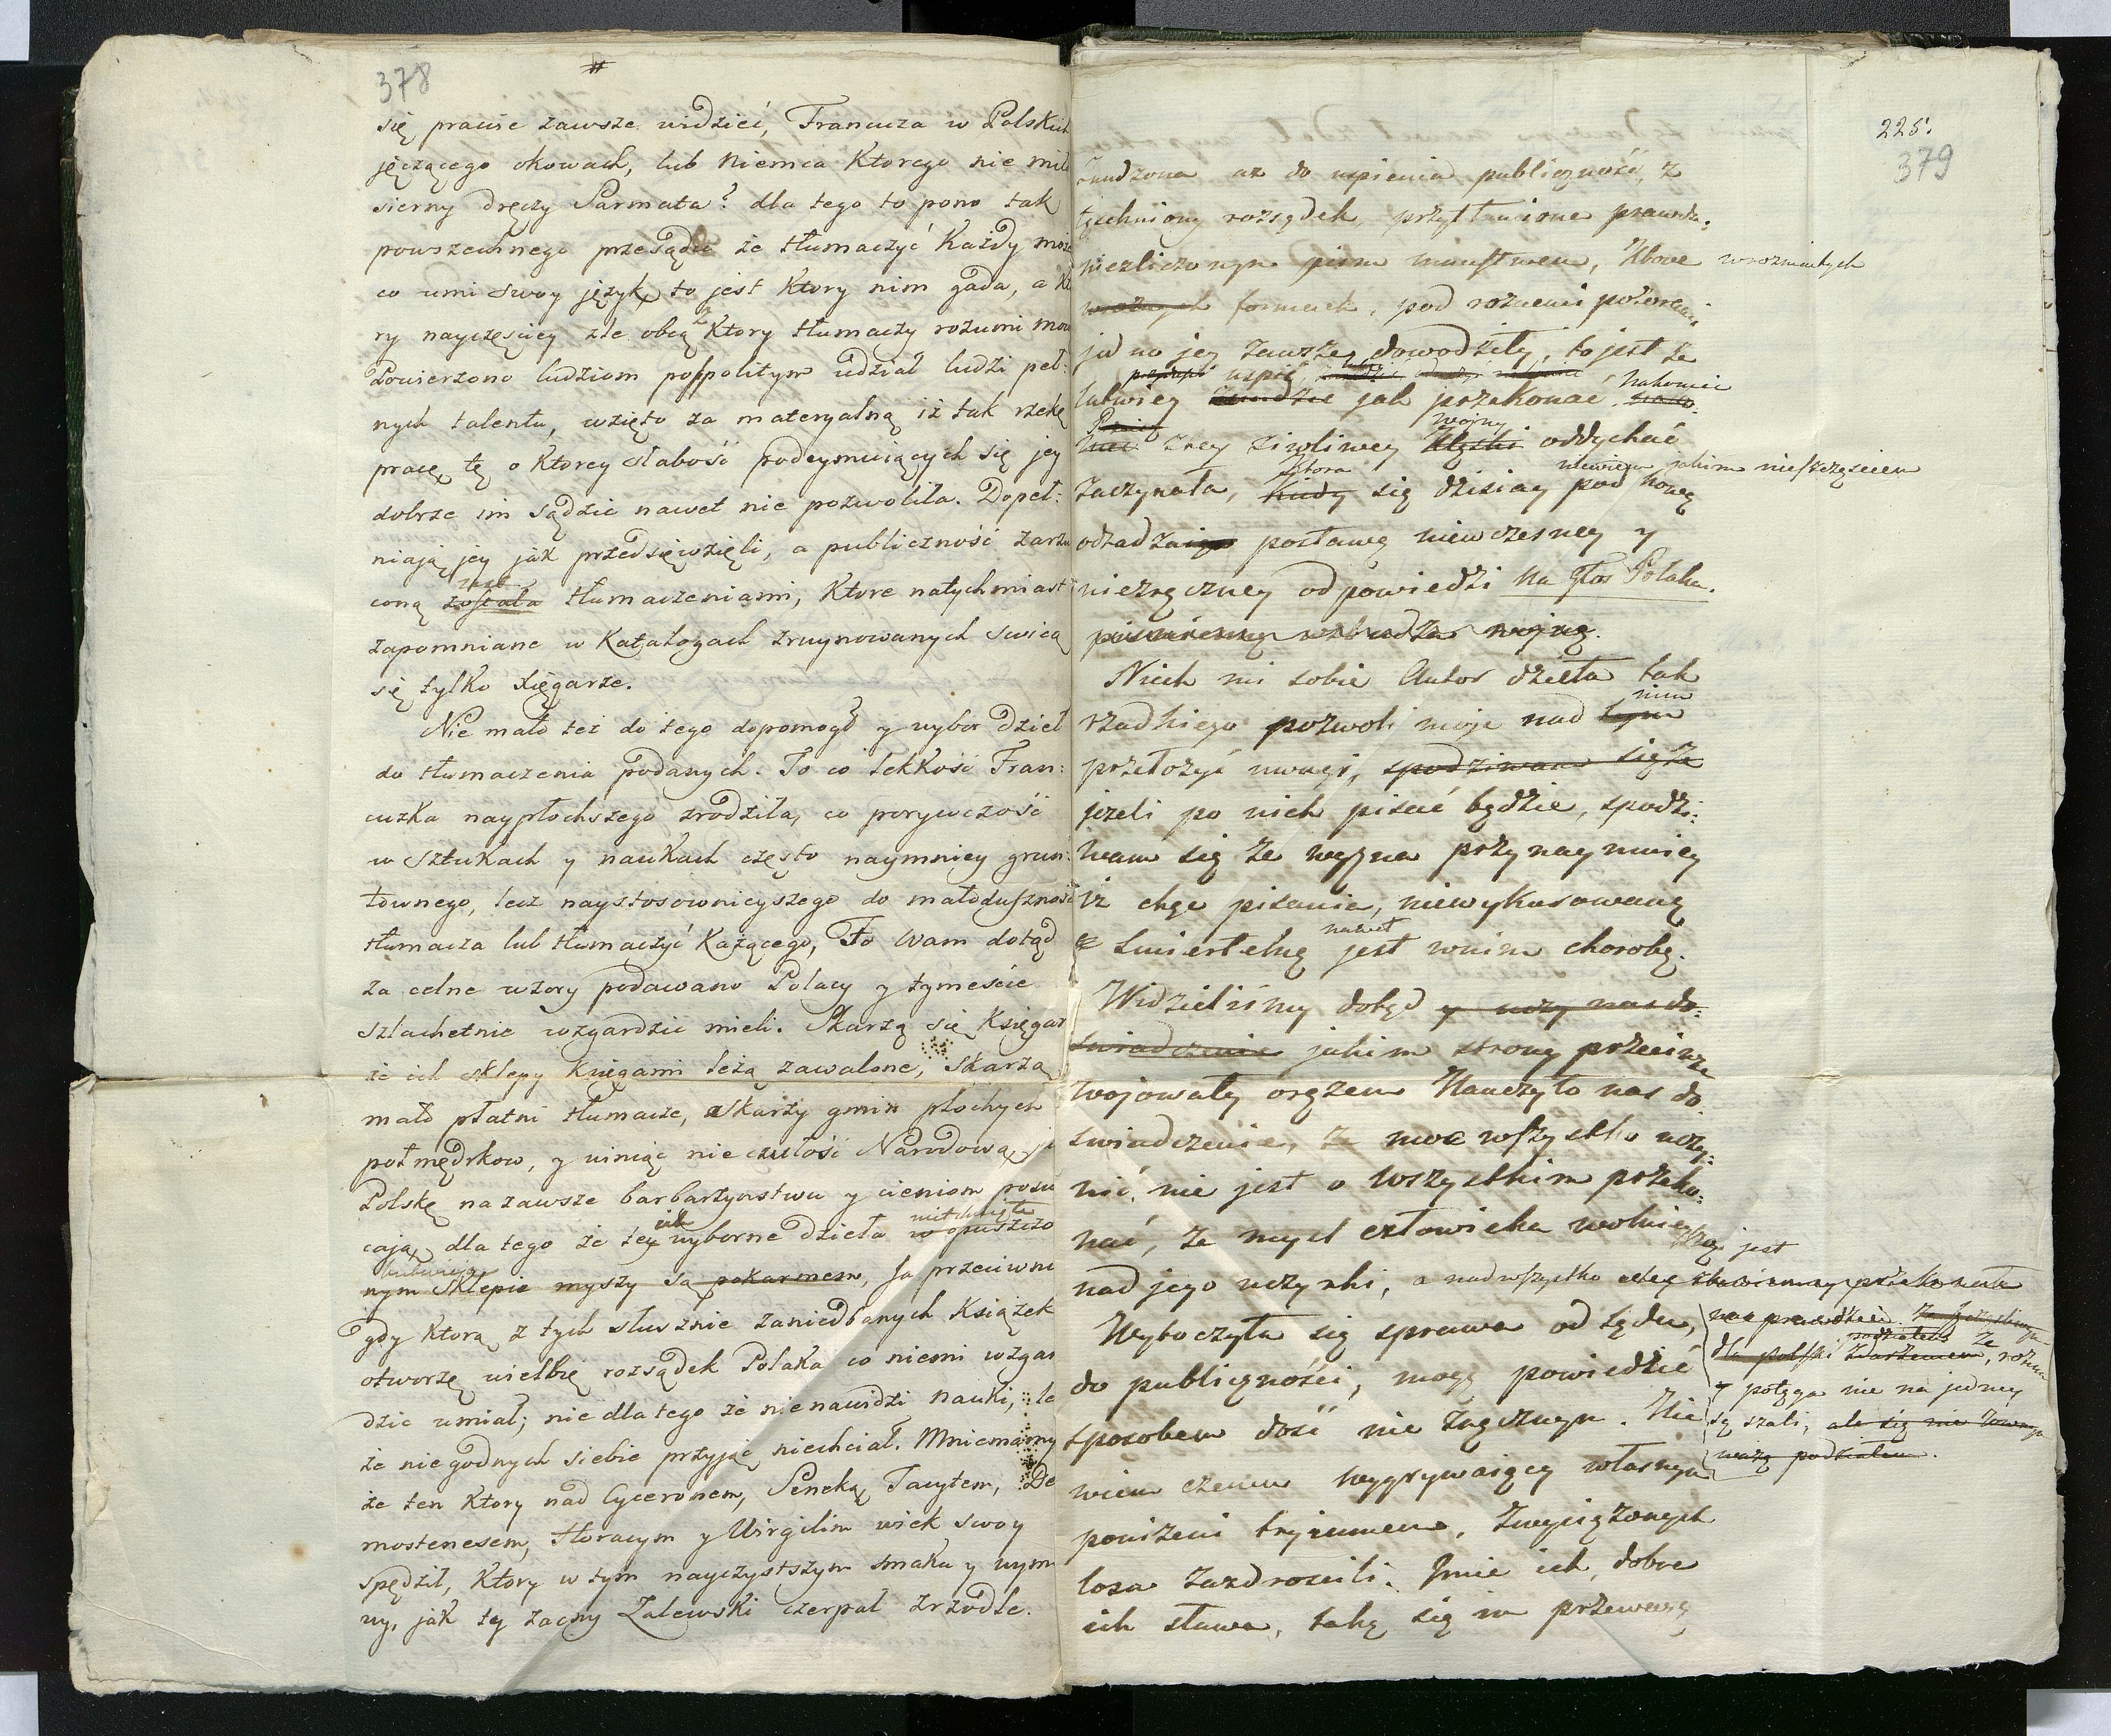 378
się prawie zawsze widzieć, Francuza w Polskich
jęczącego okowach, lub Niemca Ktorego nie miło
sierny dręczy Sarmata? dla tego to pono tak
powszechnego przesądu że tłumaczyć Każdy może
co umi swoy język, to jest Ktory nim gada, a Kto
ry nayczęściey źle obcą z Ktory tłumaczy rozumi mow
Powierzono ludziom pospolitym udział ludzi peł:
nych talentu, wzięto za materyalną iż tak rzekę
pracę, tę o Ktorey słabość podeymuiących się jey
dobrze im sądzić nawet nie pozwoliła. Dopeł:
niają jey jak przedsięwzięli, a publiczność zarzu
coną została tłumaczeniami, Ktore natychmiast
zapomniane w Katalogach zruynowanych świcą
się tylko Xięgarze.
Nie mało też do tego dopomogł y wybor dzieł
do tłumaczenia podanych. To co lekkość Fran:
cuzka naypłochszego zrodziła, co porywczość
w sztukach y naukach często naymniey grun:
townego, lecz naystosownieyszego do małoduszność
tłumacza lub tłumaczyć Każącego, To Wam dotąd
za celne wzory podawano Polacy y tymeście
szlachetnie wzgardzić mieli. Skarżą się Księgar
że ich sklepy Księgami leżą zawalone, skarżą
mało płatni tłumacze, skarży gmin płochych
połmędrkow, y winiąc nieczułość Narodową, ja
Polskę na zawsze barbarzyństwu y cieniom rzu
cają, dla tego że tey ich wyborne dzieła w opuszczo
nym Sklepie myszy są pokarmem, Ja przeciwni
gdy Ktorą z tych słusznie zaniedbanych Książek
otworzę wielbię rozsądek Polaka co niemi wzgar
dzić umiał; nie dla tego że nienawidzi nauki, le
że niegodnych siebie przyjąć niechciał. Mniemamy
że ten Ktory nad Cyceronem, Seneką, Tacytem, De
mostenesem, Horacym y Wirgilim wiek swoy
spędził, Ktory w tym nayczystszym smaku y wym
wy, jak ty zacny Zalewski czerpał zrzodle.
225.
379
znudzona aż do uspienia publiczność, z
tęschniony rozsądek, przytłumione prawda,
niezliczonym pism mnostwem, Ktore w rozmaitych
w rożnych formach, pod rożnemi pozorami
jedno jey zawsze dowodziły, to jest że
łatwiey znudzić jak przekonać. nakoniec
z tey zwodliwey wojny oddychać
zaczynała, Ktora się dzisiay niewiem jakim nieszczęściem pod nową
odradza postawą niewczesney y
niezręczney odpowiedzi na Głos Polaka.
pisemną wzbudza wojnę.
Niech mi sobie Autor dzieła tak
rzadkiego pozwoli moje nad tym nim
przełożyć uwagi, spodziwam się że
jeżeli po nich pisać będzie, spodzi:
wam się że wyzna przynaymniey
iż chęć pisania, niewykurowaną
śmiertelną nawet jest w nim chorobą.
Widzieliśmy dotąd y uczy nas do:
świadczenie jakim strony przeciwne
wojowały orężem Nauczyło nas do
świadczenie, że moc wszystko uczy:
nić, nie jest o wszystkim przeko:
nać, że mysl człowieka wolnieyszą jest
nad jego uczynki, a nadwszystko
Wytoczyła się sprawa od sądu,
do publiczności, mogę powiedzieć
sposobem dość nie zręcznym. Nie
wiem czemu wygrywaiący własnym
poniżeni tryumfem, zwyciężonych
losa zazdrościli. Imie ich, dobre
ich sława, taką się im przewagą
y potęga nie na jedney
są szali, ale się nie
ważą podziałem.